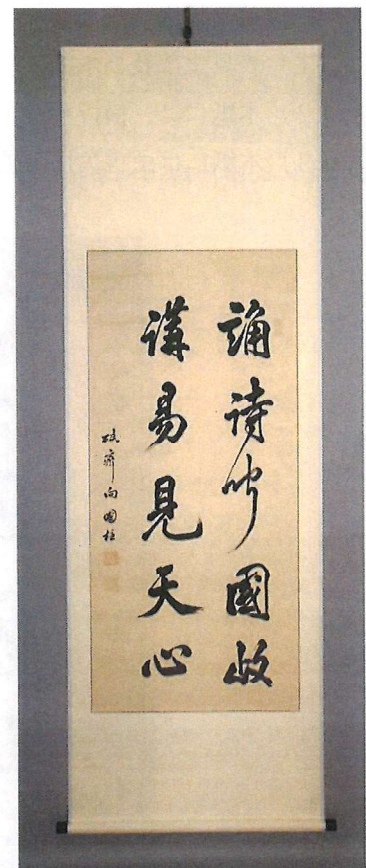 誦詩聞國政
講易見天心
向國柱